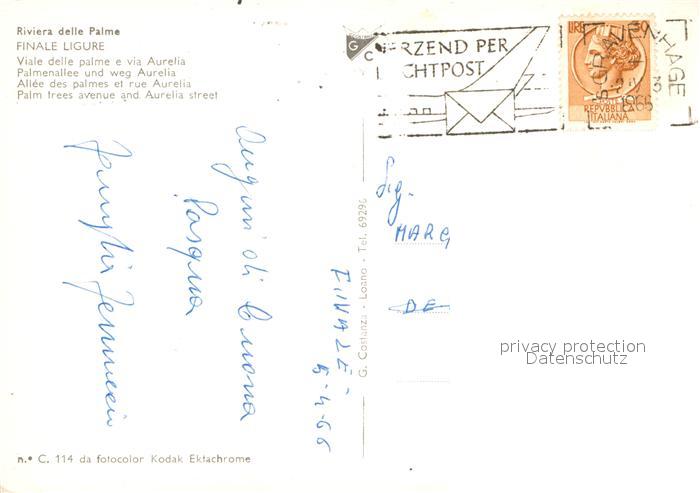 Riviera delle Palme
FINALE LIGURE
Viale delle palme e via Aurelia
Palmenallee und weg Aurelia
Allée des palmes et rue Aurelia
Palm trees avenue and Aurelia street
G C
RZEND PER
CHTPOST
'S-GRAVENHAGE
1966
LIRE
REPVBBLICA
ITALIANA
Auguri di buona
Pasqua
FINALE
5-4-66
G. Costanza - Loano - Tel. 69296
Sig.
MARG
DE
privacy protection
Datenschutz
n.º C. 114 da fotocolor Kodak Ektachrome